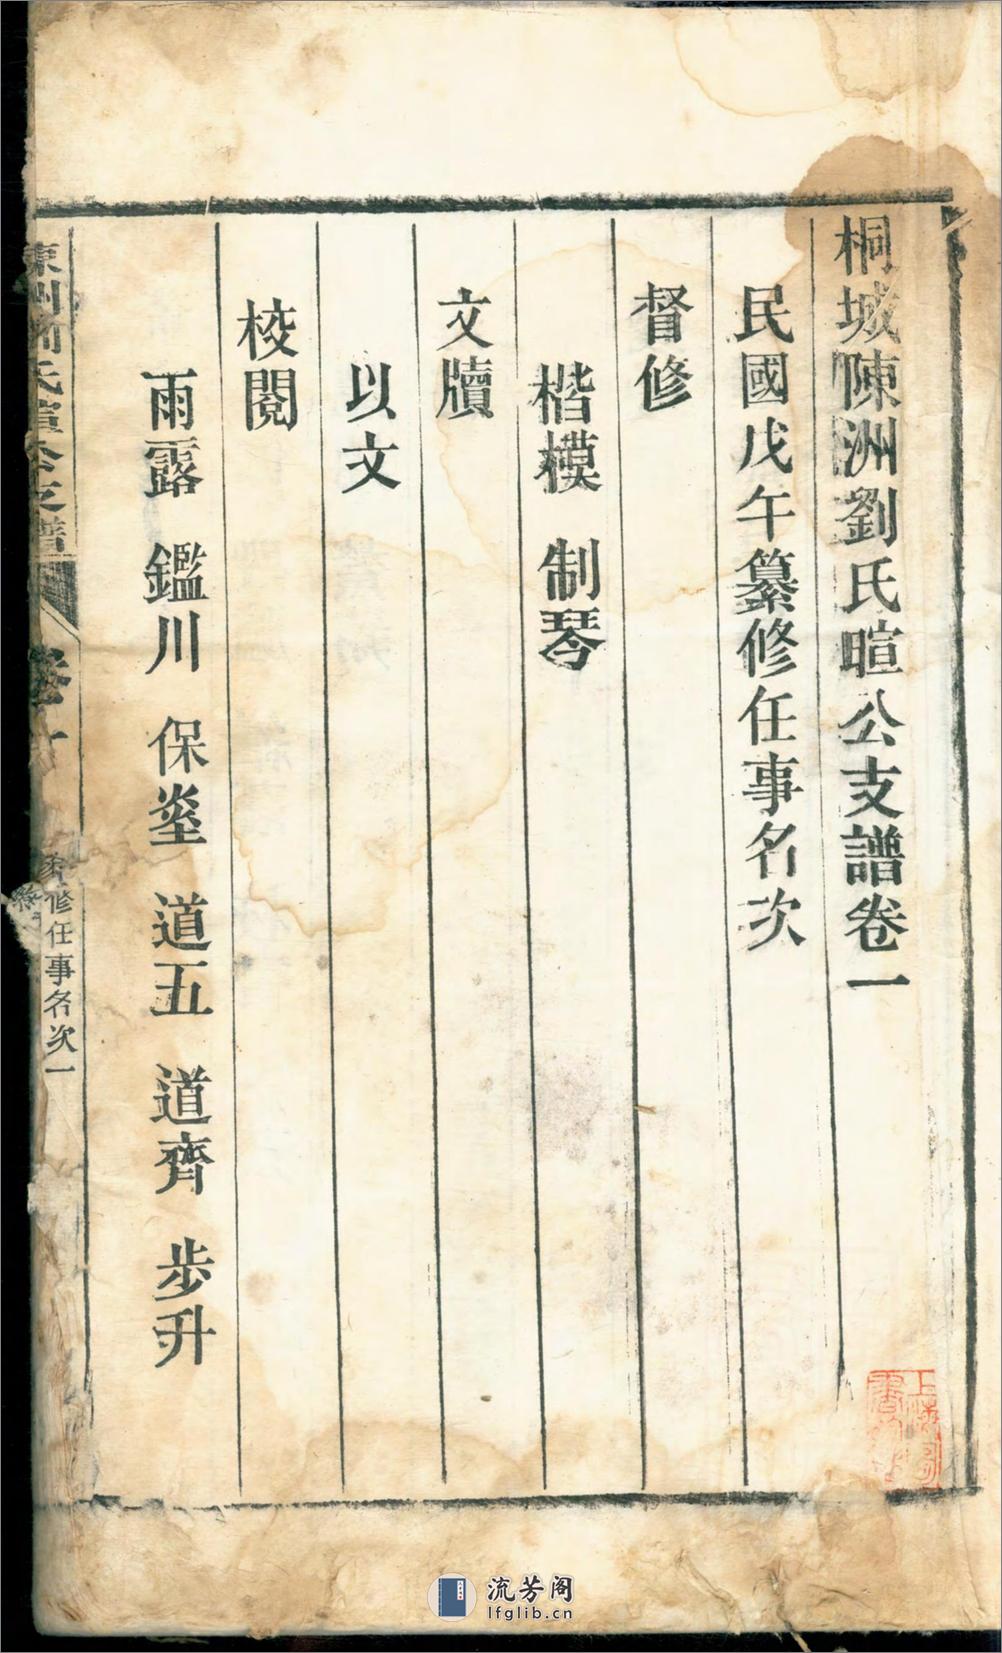 桐城陳洲劉氏暄公支譜卷一
民國戊午纂修任事名次
督修
楷模 制琴
文牘
以文
校閱
雨露 鑑川 保垄 道五 道齊 步升
陳洲劉氏暄公支譜
卷一
纂修任事名次一
流芳阁
lfglib.cn